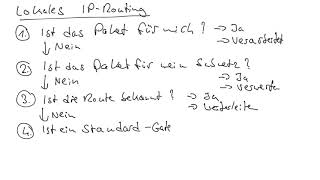 Lokales IP-Routing
1. Ist das Paket für mich? → Ja
↓ Nein → Verarbeitet
2. Ist das Paket für mein Subnetz?
↓ Nein → Ja
→ Verwerfen
3. Ist die Route bekannt? → Ja
↓ Nein → Weiterleiten
4. Ist ein Standard-Gate